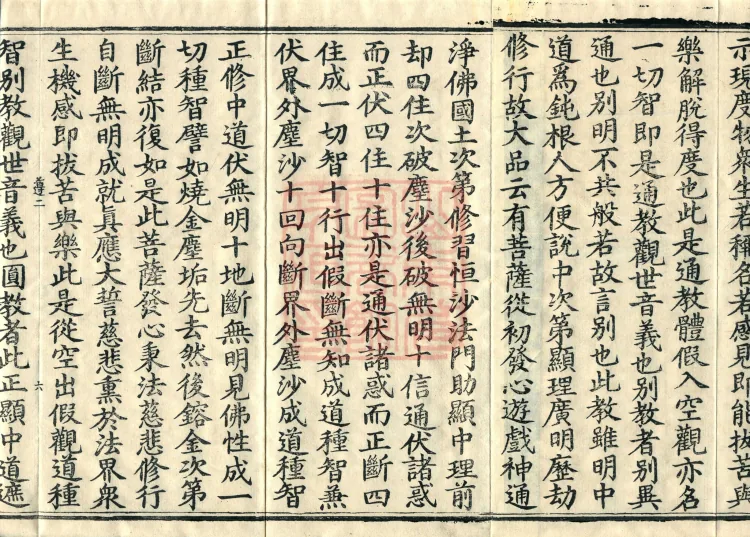 示現度物衆生若稱名若感見即能拔苦與
樂解脫得度也此是通教體假入空觀亦名
一切智即是通教觀世音義也別教者別異
通也別明不共般若故言別也此教雖明中
道為鈍根人方便說中次第顯理廣明歷劫
修行故大品云有菩薩從初發心遊戲神通
淨佛國土次第修習恒沙法門助顯中理前
却四住次破塵沙後破無明十信通伏諸惑
而正伏四住十住亦是通伏諸惑而正斷四
住成一切智十行出假斷無知成道種智兼
伏界外塵沙十回向斷界外塵沙成道種智
正修中道伏無明十地斷無明見佛性成一
切種智譬如燒金塵垢先去然後鎔金次第
斷結亦復如是此菩薩發心秉法慈悲修行
自斷無明成就真應大誓慈悲熏於法界衆
生機感即拔苦與樂此是從空出假觀道種
六
智別教觀世音義也圓教者此正顯中道遮